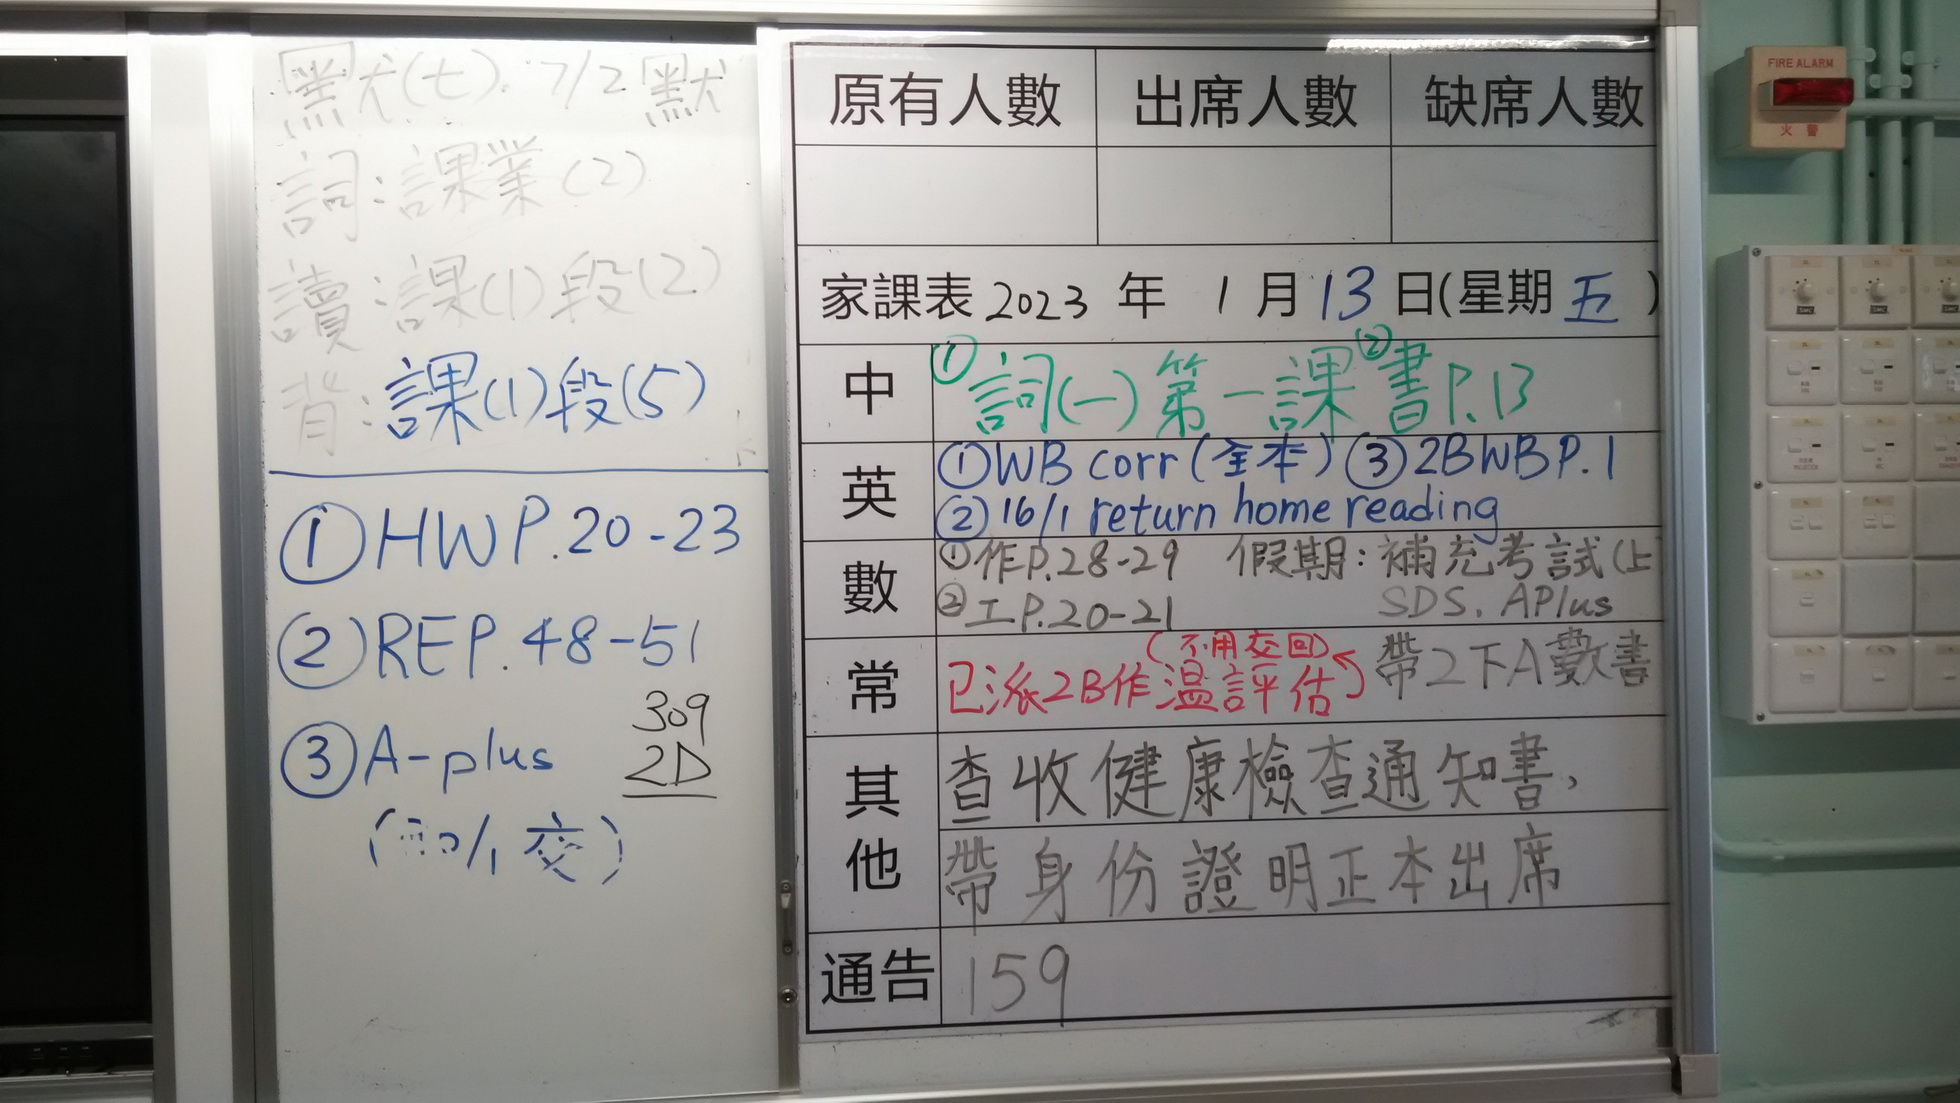 默(七). 7/2 默
詞：課業(2)
讀：課(1)段(2)
背：課(1)段(5)
①HW P.20-23
②RE P.48-51
③A-plus
309
2D
/1 交)
原有人數 出席人數 缺席人數
家課表 2023 年 1 月 13 日(星期 五 )
中 ①詞(一)第一課 ②書P.13
英 ①WB corr (全本) ③2BWB P.1
②16/1 return home reading
數 ①作P.28-29 假期：補充考試(上
②工P.20-21 SDS. APlus
(不用交回)
常 已派2B作溫評估 帶2下A數書
其他 查收健康檢查通知書，
帶身份證明正本出席
通告 159
FIRE ALARM
火警